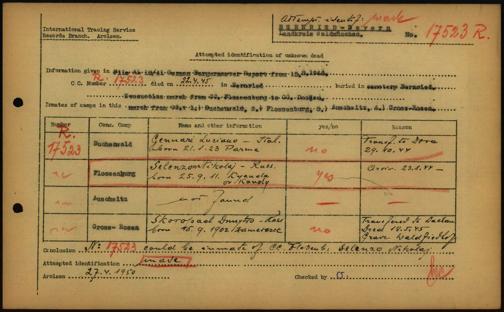 International Tracing Service
Records Branch, Arolsen.
Attempt. identif.: made
Landkreis Waldmünchen.
No. 17523 R.
Attempted identification of unknown dead
Information given in German Burgermaster Report from
C.C. Number R. 17523 died on 22.4.45 in Bernried Buried in cemetery Bernried.
Evacuation march from CC. Flossenburg to CC. Dachau.
Inmates of camps in this march from CC. 1.) Buchenwald, 2.) Flossenburg, 3.) Auschwitz, 4.) Gross-Rosen.
Number Conc. Camp Name and other information yes/no Reason
R. 17523 Buchenwald Gennari Luciano - Ital. born 21.1.23 Parma no Transf. to Dora 29.10.44
Flossenburg Selenzo Nikolaj - Russ. born 25.9.11 yes Arriv. 23.1.44
Auschwitz not found
Gross-Rosen Skorobad Dmytro - Russ born 15.9.1902 no Transfered to Dachau Died 10.5.45 Grave Waldfriedhof
Conclusion No: 17523 could be inmate of CC. Flossenb. Selenzo Nikolaj
Attempted identification made
Arolsen 27.4.1950 Checked by